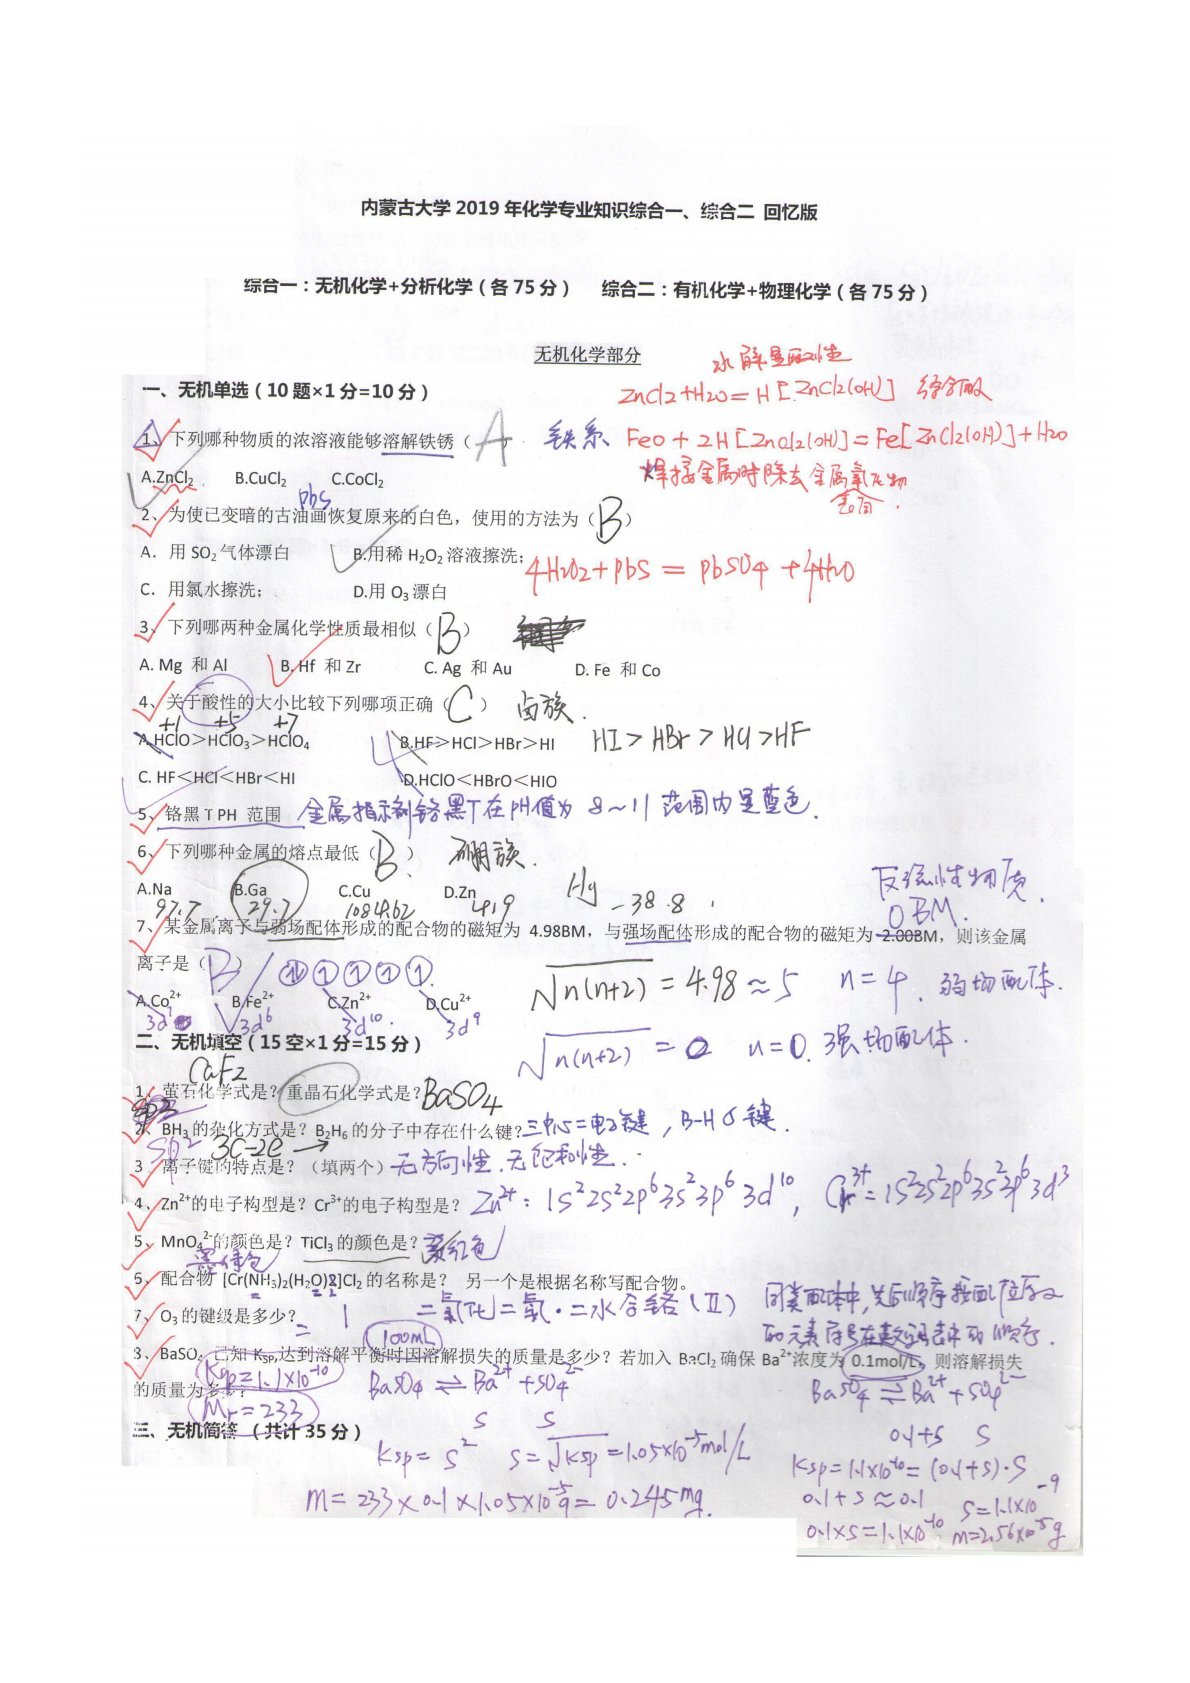 内蒙古大学 2019 年化学专业知识综合一、综合二 回忆版
综合一：无机化学+分析化学（各 75 分） 综合二：有机化学+物理化学（各 75 分）
无机化学部分
水解显酸性
ZnCl2+H2O=H[ZnCl2(OH)] 络合酸
一、无机单选（10 题×1 分=10 分）
1、下列哪种物质的浓溶液能够溶解铁锈（ A
铁系、 FeO + 2H[ZnCl2(OH)]=Fe[ZnCl2(OH)]+H2O
A.ZnCl₂ B.CuCl₂ C.CoCl₂
焊接金属时除去金属氧化物
表面.
pbs
2、为使已变暗的古油画恢复原来的白色，使用的方法为（ B ）
A. 用 SO₂ 气体漂白 B.用稀 H₂O₂ 溶液擦洗;
4H2O2+pbS = pbSO4 +4H2O
C. 用氯水擦洗; D.用 O₃ 漂白
3、下列哪两种金属化学性质最相似（ B ）
A. Mg 和 Al B. Hf 和 Zr C. Ag 和 Au D. Fe 和 Co
4、关于酸性的大小比较下列哪项正确（ C ） 卤族.
+1 +5 +7
A.HClO＞HClO₃＞HClO₄ B.HF＞HCl＞HBr＞HI HI > HBr > HCl >HF
C. HF＜HCl＜HBr＜HI D.HClO＜HBrO＜HIO
5、铬黑 T PH 范围 金属指示剂铬黑T在PH值为 8～11 范围内显蓝色.
6、下列哪种金属的熔点最低（ B ） 硼族.
A.Na B.Ga C.Cu D.Zn Hg -38.8
97.7 29.7 1084.62 419
反磁性物质.
0BM.
7、某金属离子与弱场配体形成的配合物的磁矩为 4.98BM，与强场配体形成的配合物的磁矩为 2.00BM，则该金属
离子是（ B ）
√n(n+2) = 4.98 ≈ 5 n=4. 弱场配体.
A.Co²⁺ B.Fe²⁺ C.Zn²⁺ D.Cu²⁺
3d⁷ 3d⁶ 3d¹⁰ 3d⁹
√n(n+2) = 0 n=0. 强场配体.
二、无机填空（15 空×1 分=15 分）
CaF2
1、萤石化学式是? 重晶石化学式是? BaSO4
2、BH₃ 的杂化方式是? B₂H₆ 的分子中存在什么键? 三中心二电子键, B-H σ键.
sp² 3c-2e →
3 离子键的特点是? （填两个） 无方向性. 无饱和性.
4、Zn²⁺的电子构型是? Cr³⁺的电子构型是? Zn²⁺: 1s²2s²2p⁶3s²3p⁶3d¹⁰, Cr³⁺=1s²2s²2p⁶3s²3p⁶3d³
5、MnO₄²⁻的颜色是? TiCl₃ 的颜色是? 紫红色
墨绿色
6、配合物 [Cr(NH₃)₂(H₂O)₂]Cl₂ 的名称是? 另一个是根据名称写配合物。
二氯化二氨·二水合铬(II)
同类配体中, 先后顺序按配位原子
的元素符号在英文字母表中的顺序.
7、O₃ 的键级是多少? 1
100mL
8、BaSO₄ 已知 K_SP,达到溶解平衡时因溶解损失的质量是多少? 若加入 BaCl₂ 确保 Ba²⁺浓度为 0.1mol/L，则溶解损失
的质量为多少?
Ksp=1.1×10⁻¹⁰
Mr=233
BaSO4 ⇌ Ba²⁺ +SO4²⁻
S S
BaSO4 ⇌ Ba²⁺ + SO4²⁻
0.1+S S
三、无机简答 （共计 35 分）
Ksp= S² S=√Ksp =1.05×10⁻⁵mol/L
m= 233×0.1×1.05×10⁻⁵g= 0.245mg.
Ksp=1.1×10⁻¹⁰= (0.1+S)·S
0.1+S ≈0.1 S=1.1×10⁻⁹
0.1×S=1.1×10⁻¹⁰ m=2.56×10⁻⁵g